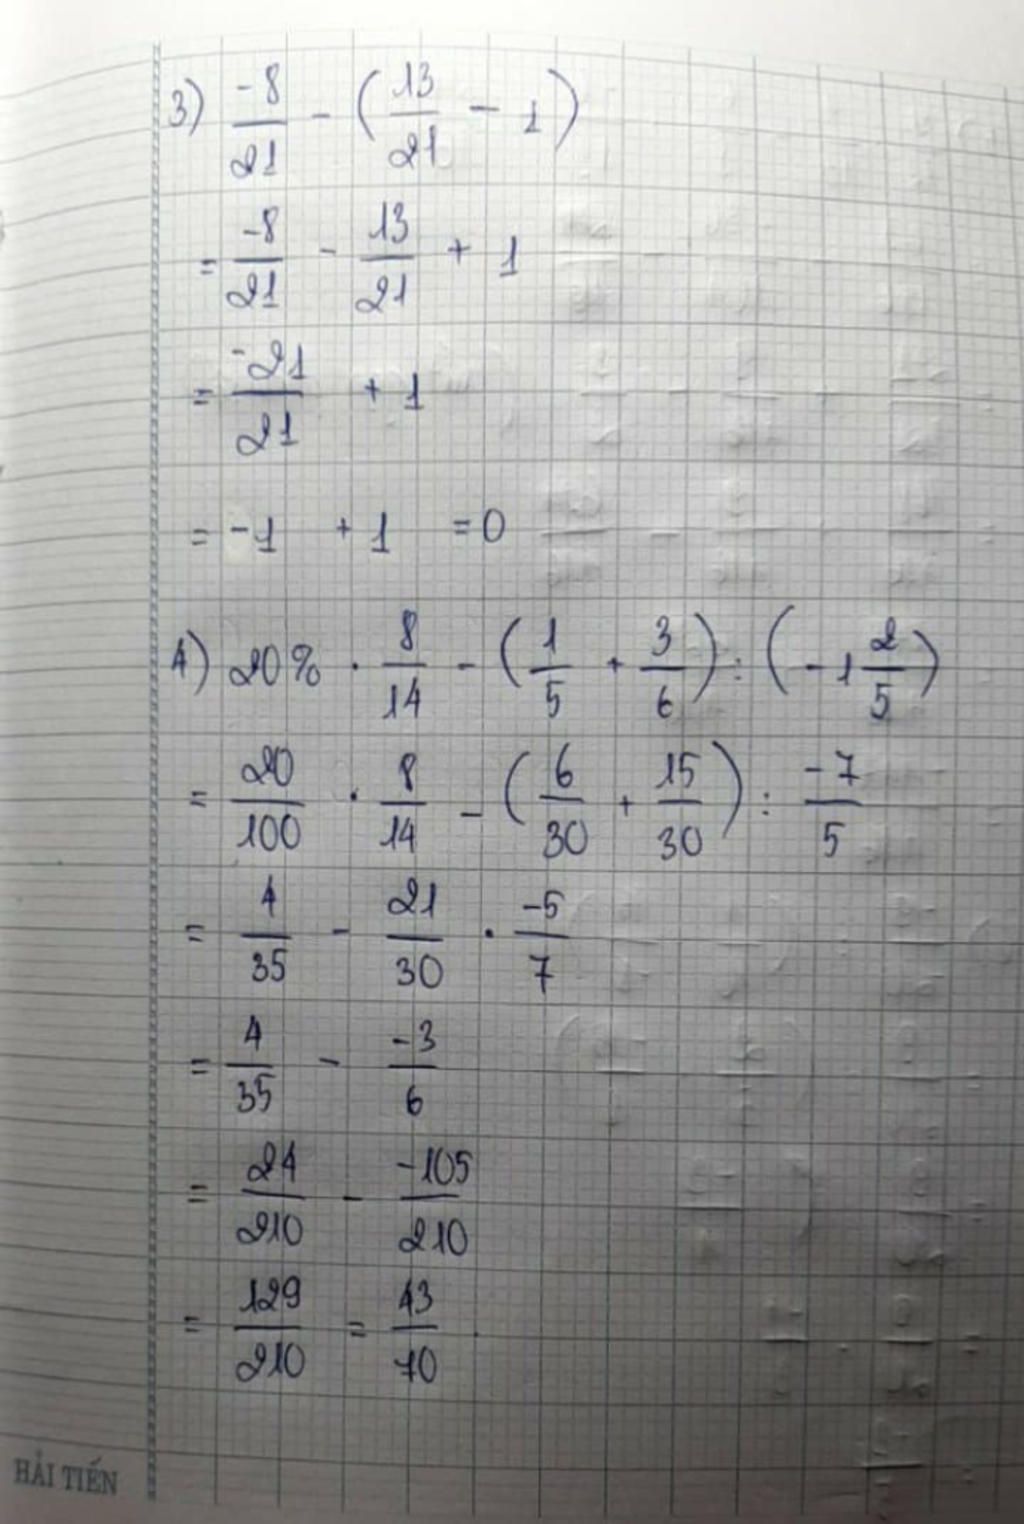 3) -8/21 - (13/21 - 1)
= -8/21 - 13/21 + 1
= -21/21 + 1
= -1 + 1 = 0
4) 20% . 8/14 - (1/5 + 3/6) : (-1 2/5)
= 20/100 . 8/14 - (6/30 + 15/30) : -7/5
= 4/35 - 21/30 . -5/7
= 4/35 - -3/6
= 24/210 - -105/210
= 129/210 = 43/70 .
HẢI TIẾN